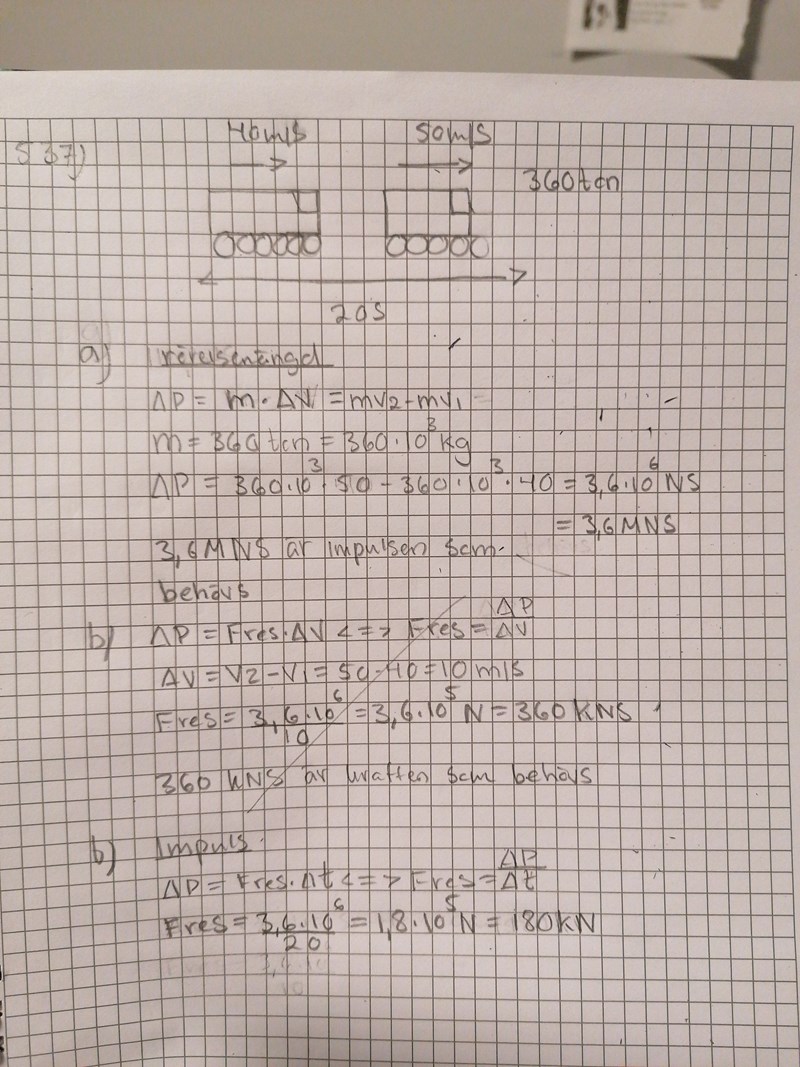 40m/s 50m/s
537)
360ton
20s
a) rörelsemängd
ΔP = m・ΔV = mv2-mv1
m = 360 ton = 360・10³ kg
ΔP = 360・10³・50 - 360・10³・40 = 3,6・10⁶ NS
= 3,6 MNS
3,6 MNS är impulsen som
behövs
b) ΔP = Fres・ΔV <=> Fres = ΔP/ΔV
ΔV = V2-V1 = 50-40 = 10 m/s
Fres = 3,6・10⁶/10 = 3,6・10⁵ N = 360 KNS
360 KNS är kraften som behövs
b) Impuls
ΔP = Fres・Δt <=> Fres = ΔP/Δt
Fres = 3,6・10⁶/20 = 1,8・10⁵ N = 180 KN